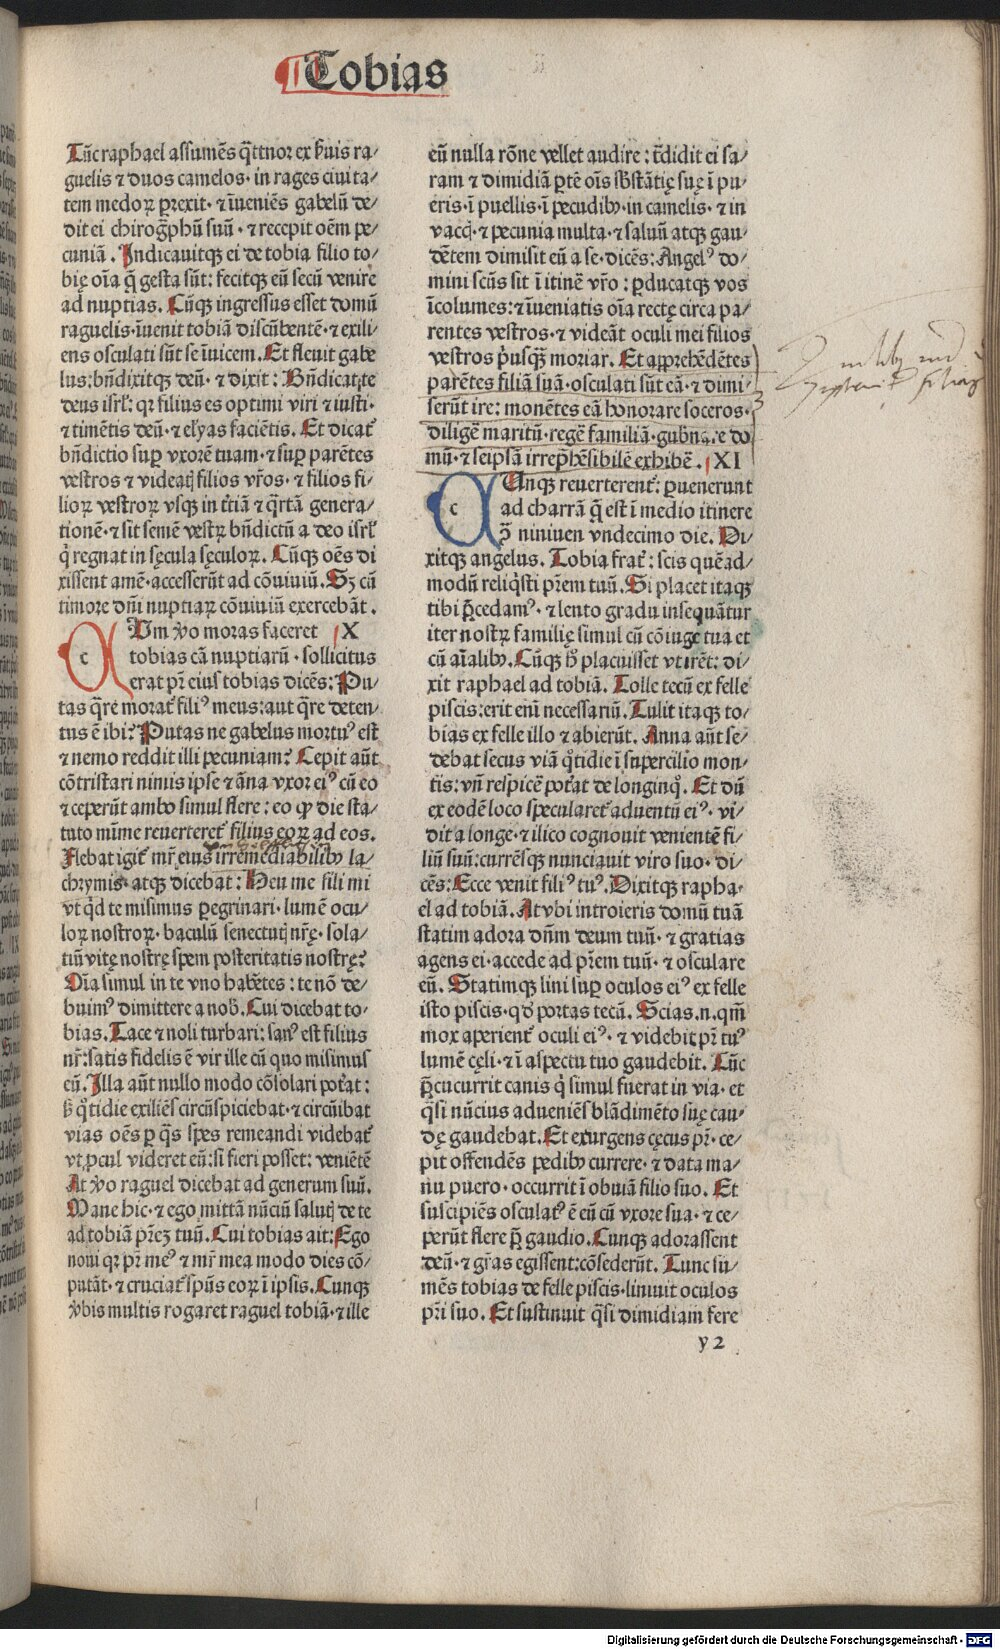 Tobias
Tūc raphael assumēs q̄ttuor ex ẜuis ra/
guelis ⁊ duos camelos· in rages ciuita/
tem medoꝝ ꝑrexit· ⁊ īueniēs gabelū de/
dit ei chirog̃phū suū · ⁊ recepit oēm pe/
cuniā . Indicauitqꝫ ei de tobia filio to/
bię oīa q̄ gesta sūt: fecitqꝫ eū secū venire
ad nuptias. Cūqꝫ ingressus esset domū
raguelis·īuenit tobiā discūbentē·⁊ exili/
ens osculati sūt se īuicem. Et fleuit gabe
lus:bn̄dixitqꝫ deū· ⁊ dixit: Bn̄dicat te
deus isrl̄: qꝛ filius es optimi viri ⁊ iusti·
⁊ timētis deū· ⁊ elyas faciētis. Et dicat᷑
bn̄dictio suꝑ vxorē tuam· ⁊ suꝑ parētes
vestros ⁊ videatꝭ filios vr̄os· ⁊ filios fi/
lioꝝ vestroꝝ vsqꝫ in t̄tiā ⁊ q̄rtā genera/
tionē·⁊ sit semē vestꝝ bn̄dictū a deo isrl̄
q̇ regnat in sęcula sęculoꝝ. Cūqꝫ oēs di
xissent amē·accesserūt ad cōuiuiū. Sꝫ cū
timore dn̄i nuptiaꝝ cōuiuiū exercebāt .
c Vm ꝟo moras faceret X
tobias cā nuptiarū · sollicitus
erat pr̄ eius tobias dicēs: Pu/
tas q̄re morat᷑ filiꝰ meus:aut q̄re deten/
tus ē ibi? Putas ne gabelus mortuꝰ est
⁊ nemo reddit illi pecuniam? Cepit aūt
cōtristari nimis ipse ⁊ āna vxor eiꝰ cū eo
⁊ ceperūt ambo simul flere: eo ꝙ die sta/
tuto mīme reuerteret᷑ filius eoꝝ ad eos.
Flebat igit᷑ mr̄ eius irremediabilibꝰ la/
chrymis· atqꝫ dicebat: Heu me fili mi
vt qͥd te misimus ꝑegrinari· lumē ocu/
loꝝ nostroꝝ· baculū senectutꝭ nr̄ę· sola/
tiū vitę nostrę spem posteritatis nostrę?
Oīa simul in te vno habētes: te nō de/
buimꝰ dimittere a nob̄. Cui dicebat to/
bias. Tace ⁊ noli turbari: sanꝰ est filius
nr̄:satis fidelis ē vir ille cū quo misimus
eū. Illa aūt nullo modo cōsolari pot̄at:
ẜꝫ qͦtidie exiliēs circūspiciebat·⁊ circūibat
vias oēs ꝑ q̄s spes remeandi videbat᷑
vt ꝓcul videret eū:si fieri posset: veniētē
At ꝟo raguel dicebat ad generum suū.
Mane hic· ⁊ ego mittā nūciū salutꝭ de te
ad tobiā pr̄eꝫ tuū. Cui tobias ait: Ego
noui qꝛ pr̄ meꝰ ⁊ mr̄ mea modo dies cō/
putāt· ⁊ cruciat᷑ sp̄us eoꝝ ī ipsis. Cunqꝫ
ꝟbis multis rogaret raguel tobiā·⁊ ille
eū nulla rōne vellet audire: t̄didit ei sa/
ram ⁊ dimidiā ꝑtē oīs sb̄stātię suę ī pu/
eris·ī puellis·ī pecudibꝰ·in camelis· ⁊ in
vaccꝭ·⁊ pecunia multa·⁊ saluū atqꝫ gau/
dētem dimisit eū a se·dicēs: Angelꝰ do/
mini scūs sit ī itinē vr̄o: ꝑducatqꝫ vos
īcolumes: ⁊ īueniatis oīa rectę circa pa/
rentes vestros· ⁊ videāt oculi mei filios
vestros pͥusqꝫ̄ moriar. Et apprehēdētes
parētes filiā suā· osculati sūt eā· ⁊ dimi/
serūt ire: monētes eā honorare soceros·
diligē maritū·regē familiā·gub̄nare do
mū·⁊ seipsā irrep̄hēsibilē exhibē. XI
c Vnqꝫ reuerterent᷑: ꝑuenerunt
ad charrā q̄ est ī medio itinere
ↄ̄ niniuen vndecimo die. Di/
xitqꝫ angelus. Tobia frat᷑: scis quēad/
modū reliqͥsti pr̄em tuū. Si placet itaqꝫ
tibi p̄cedamꝰ· ⁊ lento gradu insequātur
iter nostꝝ familię simul cū cōiuge tua et
cū aīalibꝰ. Cūqꝫ hͦ placuisset vt irēt: di/
xit raphael ad tobiā. Tolle tecū ex felle
piscis:erit enī necessariū. Tulit itaqꝫ to/
bias ex felle illo ⁊ abierūt. Anna aūt se/
debat secus viā qͦtidie ī supercilio mon/
tis: vn̄ respicē pot̄at de longinqͦ. Et dū
ex eodē loco specularet᷑ aduentū eiꝰ· vi/
dit a longe· ⁊ ilico cognouit venientē fi/
liū suū:currēsqꝫ nunciauit viro suo· di/
cēs: Ecce venit filiꝰ tuꝰ. Dixitqꝫ rapha·
el ad tobiā. At vbi introieris domū tuā
statim adora dn̄m deum tuū· ⁊ gratias
agens ei·accede ad pr̄em tuū· ⁊ osculare
eū. Statimqꝫ lini suꝑ oculos eiꝰ ex felle
isto piscis· qd̓ portas tecū. Scias.n.qm̄
mox aperient᷑ oculi eiꝰ· ⁊ videbit pr̄ tuꝰ
lumē cęli·⁊ ī aspectu tuo gaudebit. Tūc
p̄cucurrit canis qͥ simul fuerat in via· et
q̄si nūcius adueniēs blādimēto suę cau/
dę gaudebat. Et exurgens cęcus pr̄· ce/
pit offendēs pedibꝰ currere· ⁊ data ma/
nu puero· occurrit ī obuiā filio suo. Et
suscipiēs osculatꝰ ē eū cū vxore sua· ⁊ ce/
perūt flere p̄ gaudio. Cunqꝫ adorassent
deū· ⁊ gr̄as egissent:cōsederūt. Tunc su/
mēs tobias de felle piscis·liniuit oculos
pr̄i suo. Et sustinuit q̄si dimidiam fere
y 2
Digitalisierung gefördert durch die Deutsche Forschungsgemeinschaft - DFG